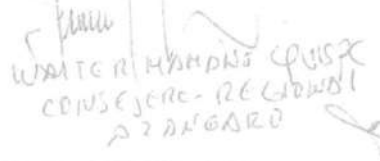 WALTER MAMANI QUISPE
CONSEJERO - REGIONAL
AZANGARO